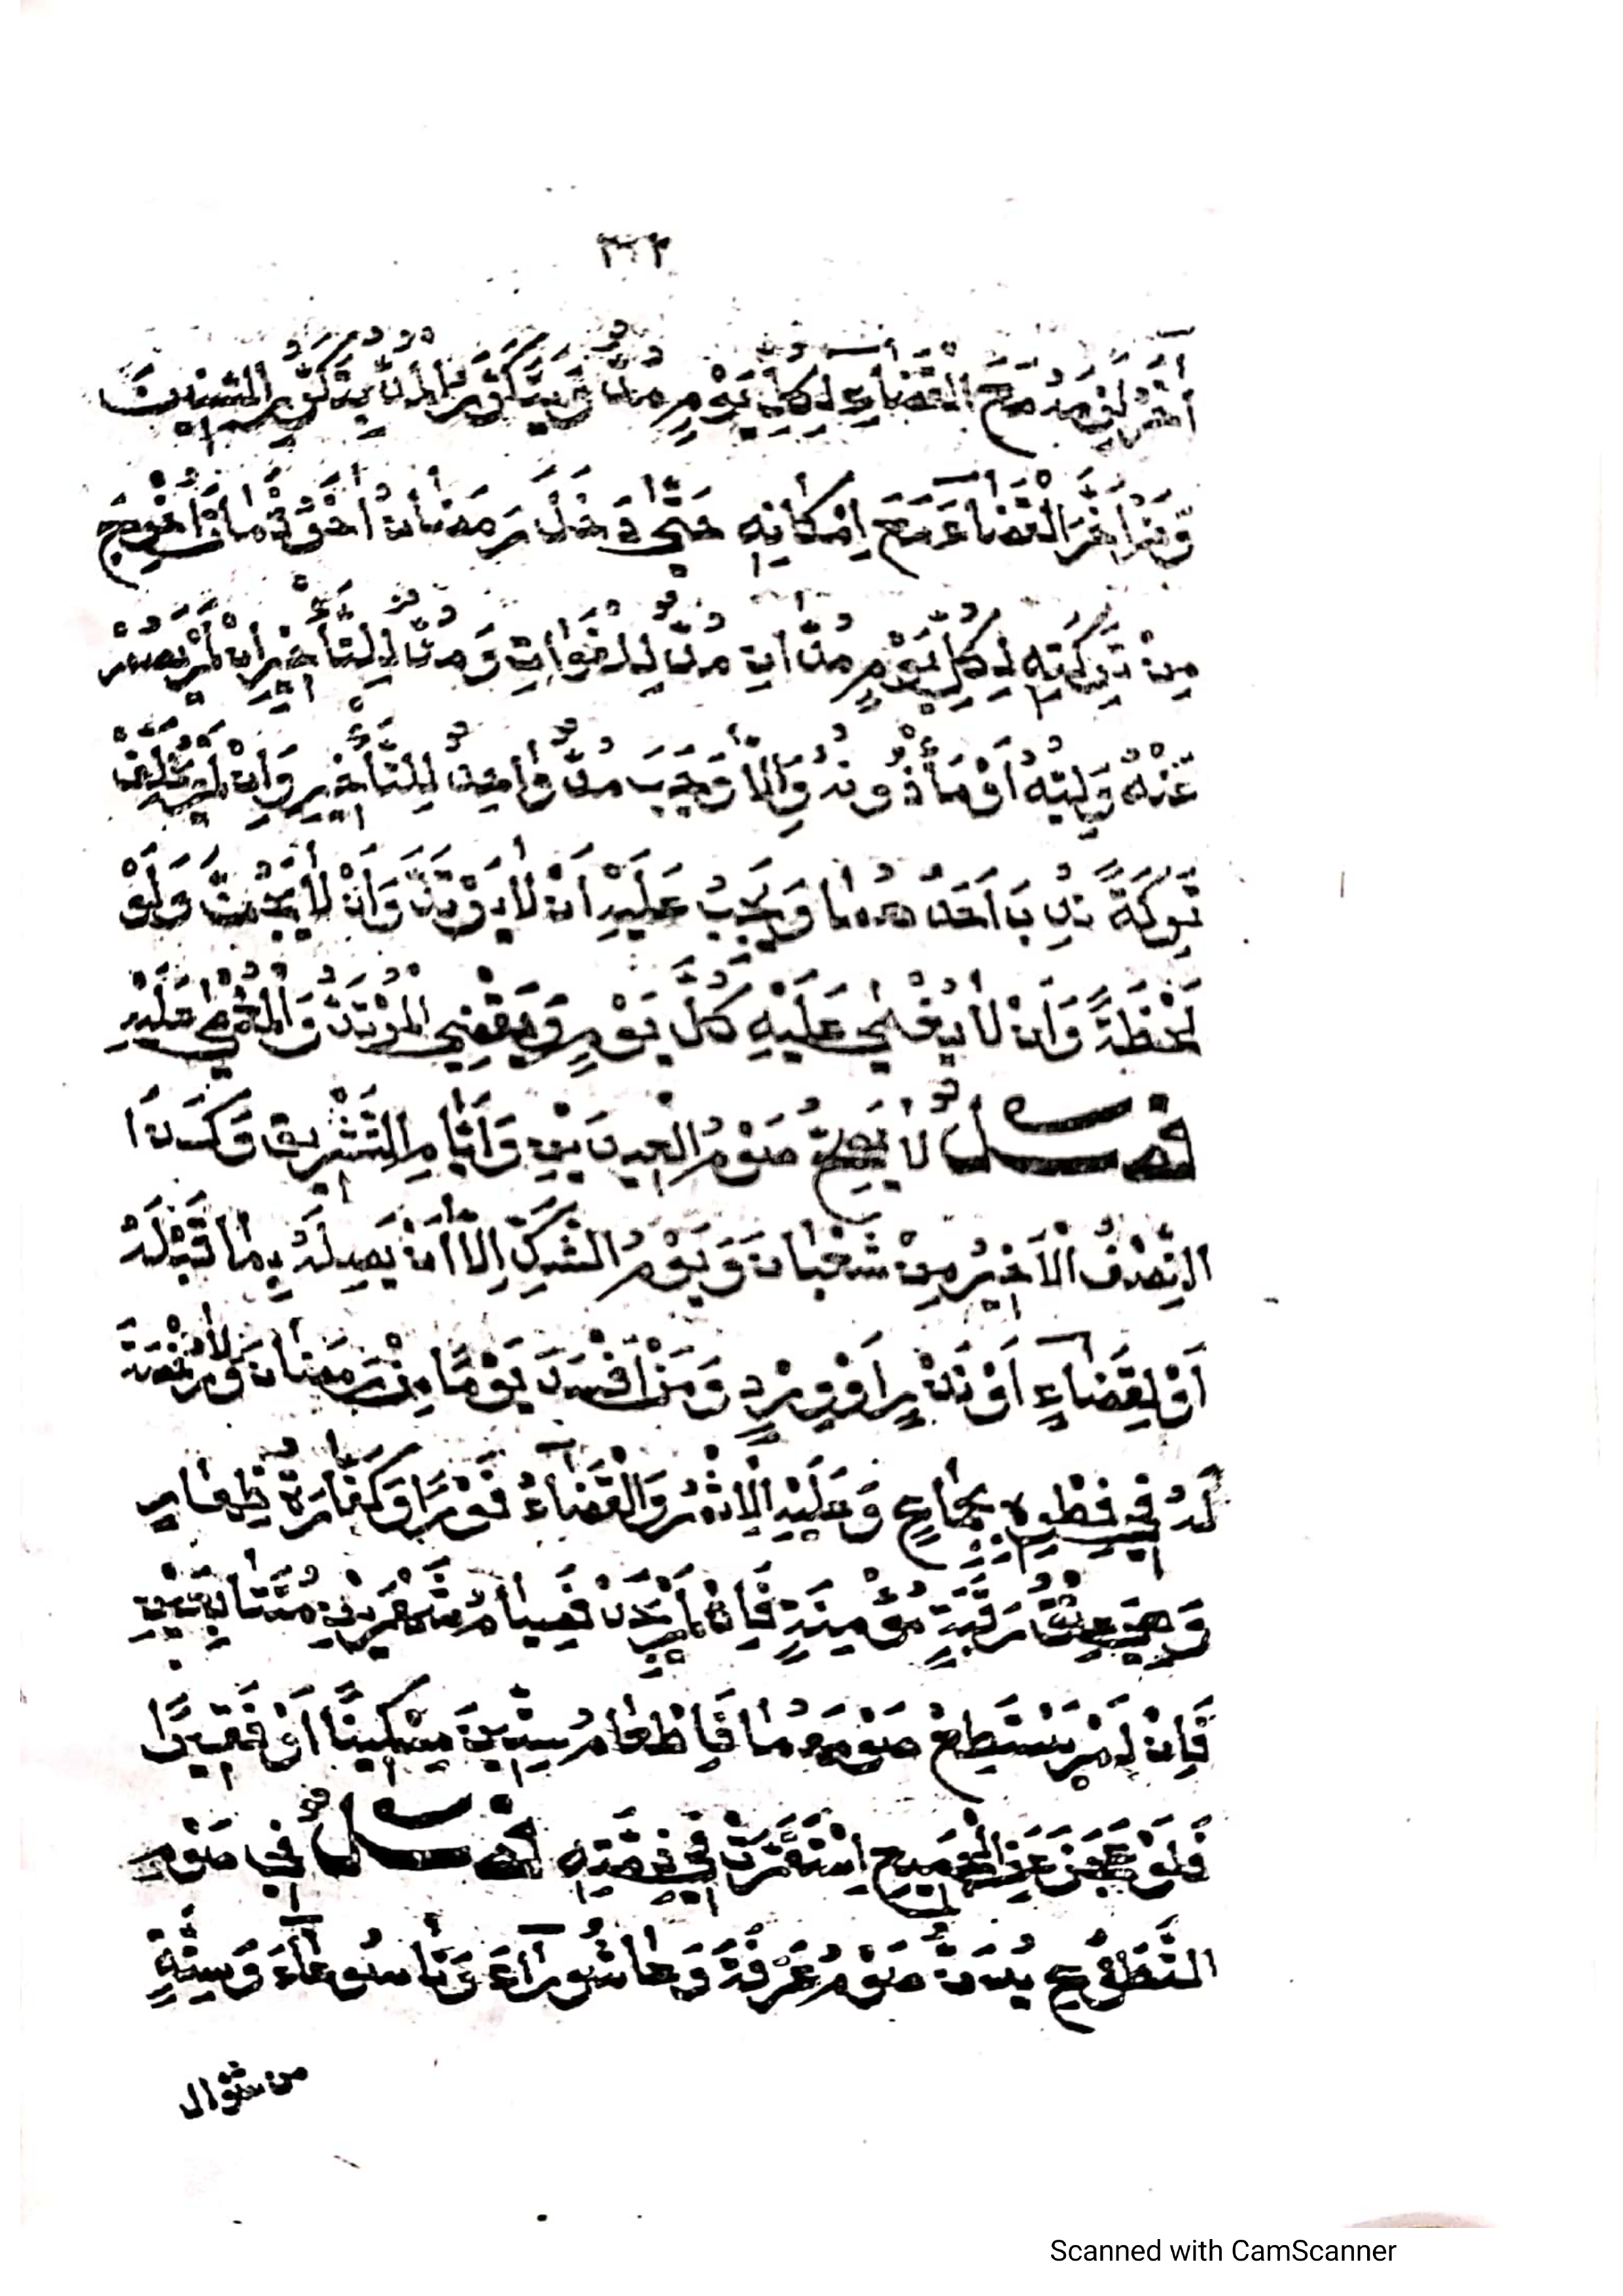 آخَرُ لَزِمَهُ مَعَ الْقَضَاءِ لِكُلِّ يَوْمٍ مُدٌّ وَيَتَكَرَّرُ الْمُدُّ بِتَكَرُّرِ السِّنِينَ
وَمَنْ أَخَّرَ الْقَضَاءَ مَعَ إِمْكَانِهِ حَتَّى دَخَلَ رَمَضَانُ آخَرُ فَمَاتَ أُخْرِجَ
مِنْ تَرِكَتِهِ لِكُلِّ يَوْمٍ مُدَّانِ مُدٌّ لِلْفَوَاتِ وَمُدٌّ لِلتَّأْخِيرِ إِنْ لَمْ يَصُمْ
عَنْهُ وَلِيُّهُ أَوْ مَأْذُونُهُ وَإِلَّا وَجَبَ مُدٌّ وَاحِدٌ لِلتَّأْخِيرِ وَإِنْ لَمْ يُخَلِّفْ
تَرِكَةً نُدِبَ أَحَدُهُمَا وَيَجِبُ عَلَيْهِ أَنْ لَا يَرْتَدَّ وَأَنْ لَا يُجَنَّ وَلَوْ
لَحْظَةً وَأَنْ لَا يُغْمَى عَلَيْهِ كُلَّ يَوْمٍ وَيَقْضِي الْمُرْتَدُّ وَالْمُغْمَى عَلَيْهِ
فصل لَا يَصِحُّ صَوْمُ الْعِيدَيْنِ وَأَيَّامِ التَّشْرِيقِ وَكَذَا
النِّصْفُ الْأَخِيرُ مِنْ شَعْبَانَ وَيَوْمُ الشَّكِّ إِلَّا أَنْ يَصِلَهُ بِمَا قَبْلَهُ
أَوْ لِقَضَاءٍ أَوْ نَذْرٍ أَوْ وِرْدٍ وَمَنْ أَفْسَدَ يَوْمًا مِنْ رَمَضَانَ وَلَا رُخْصَةَ
لَهُ فِي فِطْرِهِ بِجِمَاعٍ وَعَلَيْهِ الْإِثْمُ وَالْقَضَاءُ فَوْرًا وَكَفَّارَةُ ظِهَارٍ
وَهِيَ عِتْقُ رَقَبَةٍ مُؤْمِنَةٍ فَإِنْ لَمْ يَجِدْ فَصِيَامُ شَهْرَيْنِ مُتَتَابِعَيْنِ
فَإِنْ لَمْ يَسْتَطِعْ صَوْمَهُمَا فَإِطْعَامُ سِتِّينَ مِسْكِينًا أَوْ فَقِيرًا
فَلَوْ عَجَزَ عَنِ الْجَمِيعِ اسْتَقَرَّتْ فِي ذِمَّتِهِ فصل فِي صَوْمِ
التَّطَوُّعِ يُسَنُّ صَوْمُ عَرَفَةَ وَعَاشُورَاءَ وَتَاسُوعَاءَ وَسِتَّةٍ
من شوال
Scanned with CamScanner